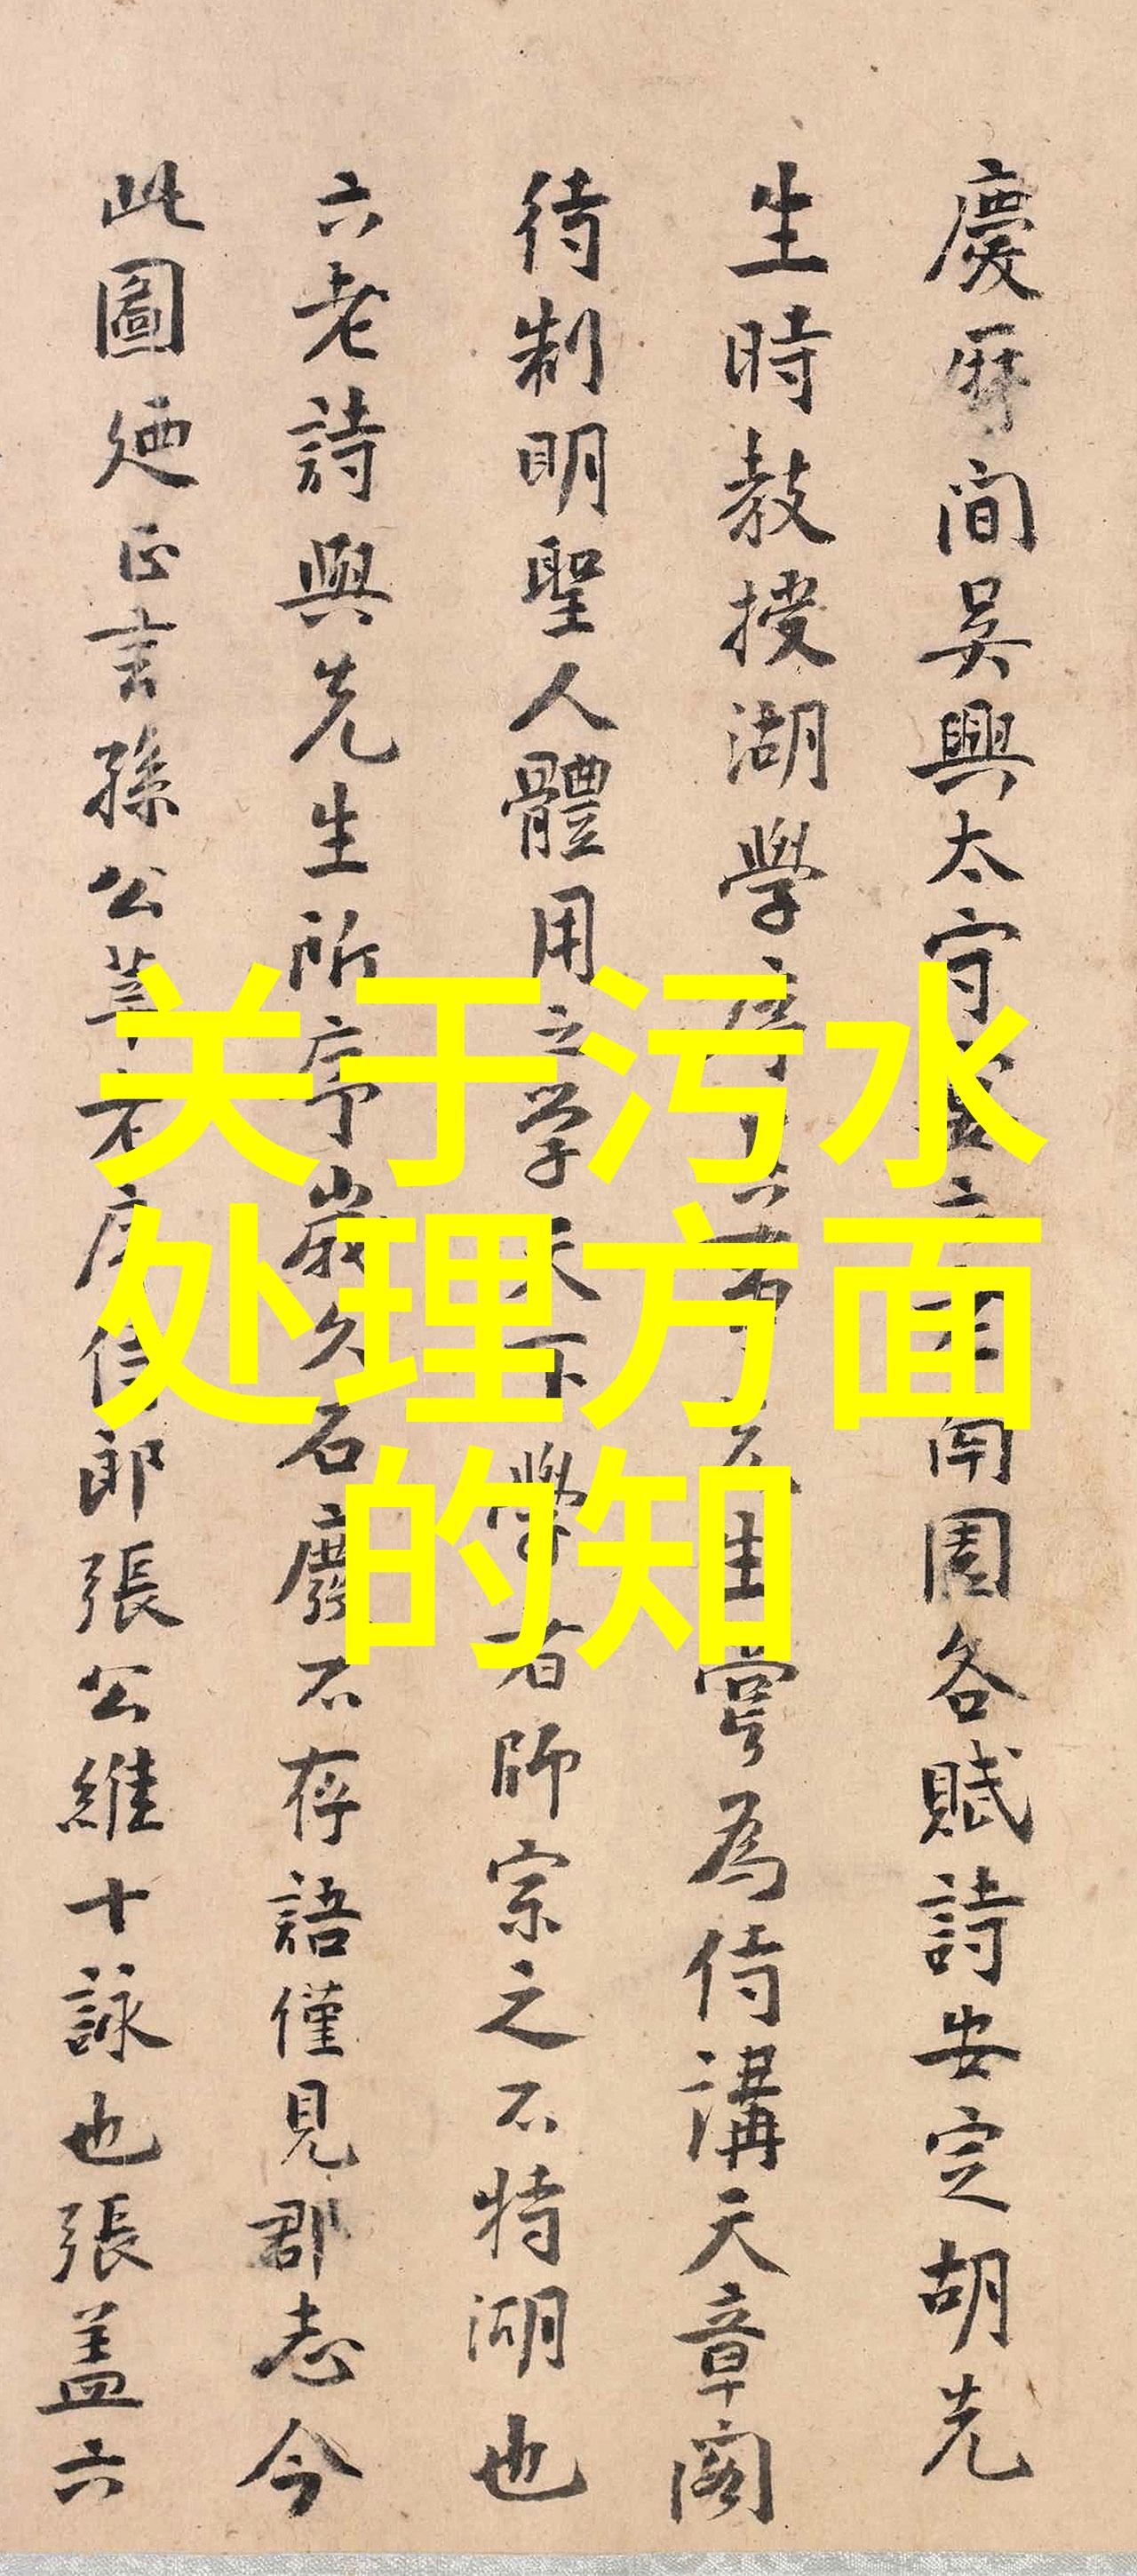 慶曆間吳興太守 六老 南園各賦詩安定胡先
生時教授湖學 生嘗為侍講天章閣
待制明聖人體用之學天下學者師宗之不特湖也
六老詩興先生所序歲久石廢不存語僅見郡志今
此圖廼正言孫公 侍郎張公維十詠也張蓋六
关于污水
处理方面
的知